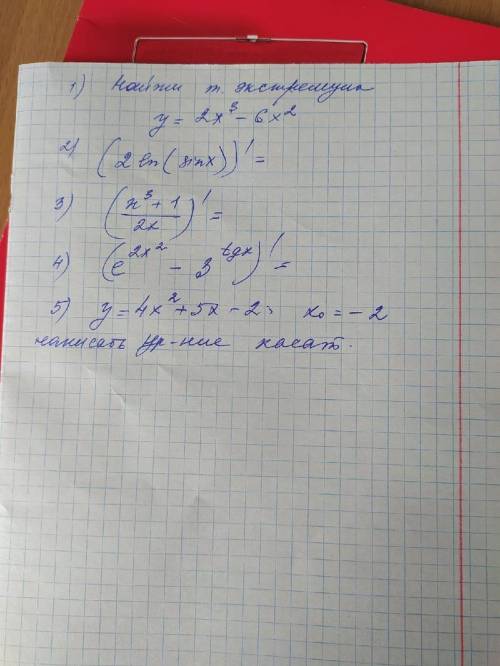 1) Найти т. экстремума
y = 2x³ - 6x²
2) (2 ln(sinx))' =
3) ((x³ + 1)/(2x))' =
4) (e^(2x²) - 3^(tgx))' =
5) y = 4x² + 5x - 2; x₀ = -2
написать ур-ние касат.